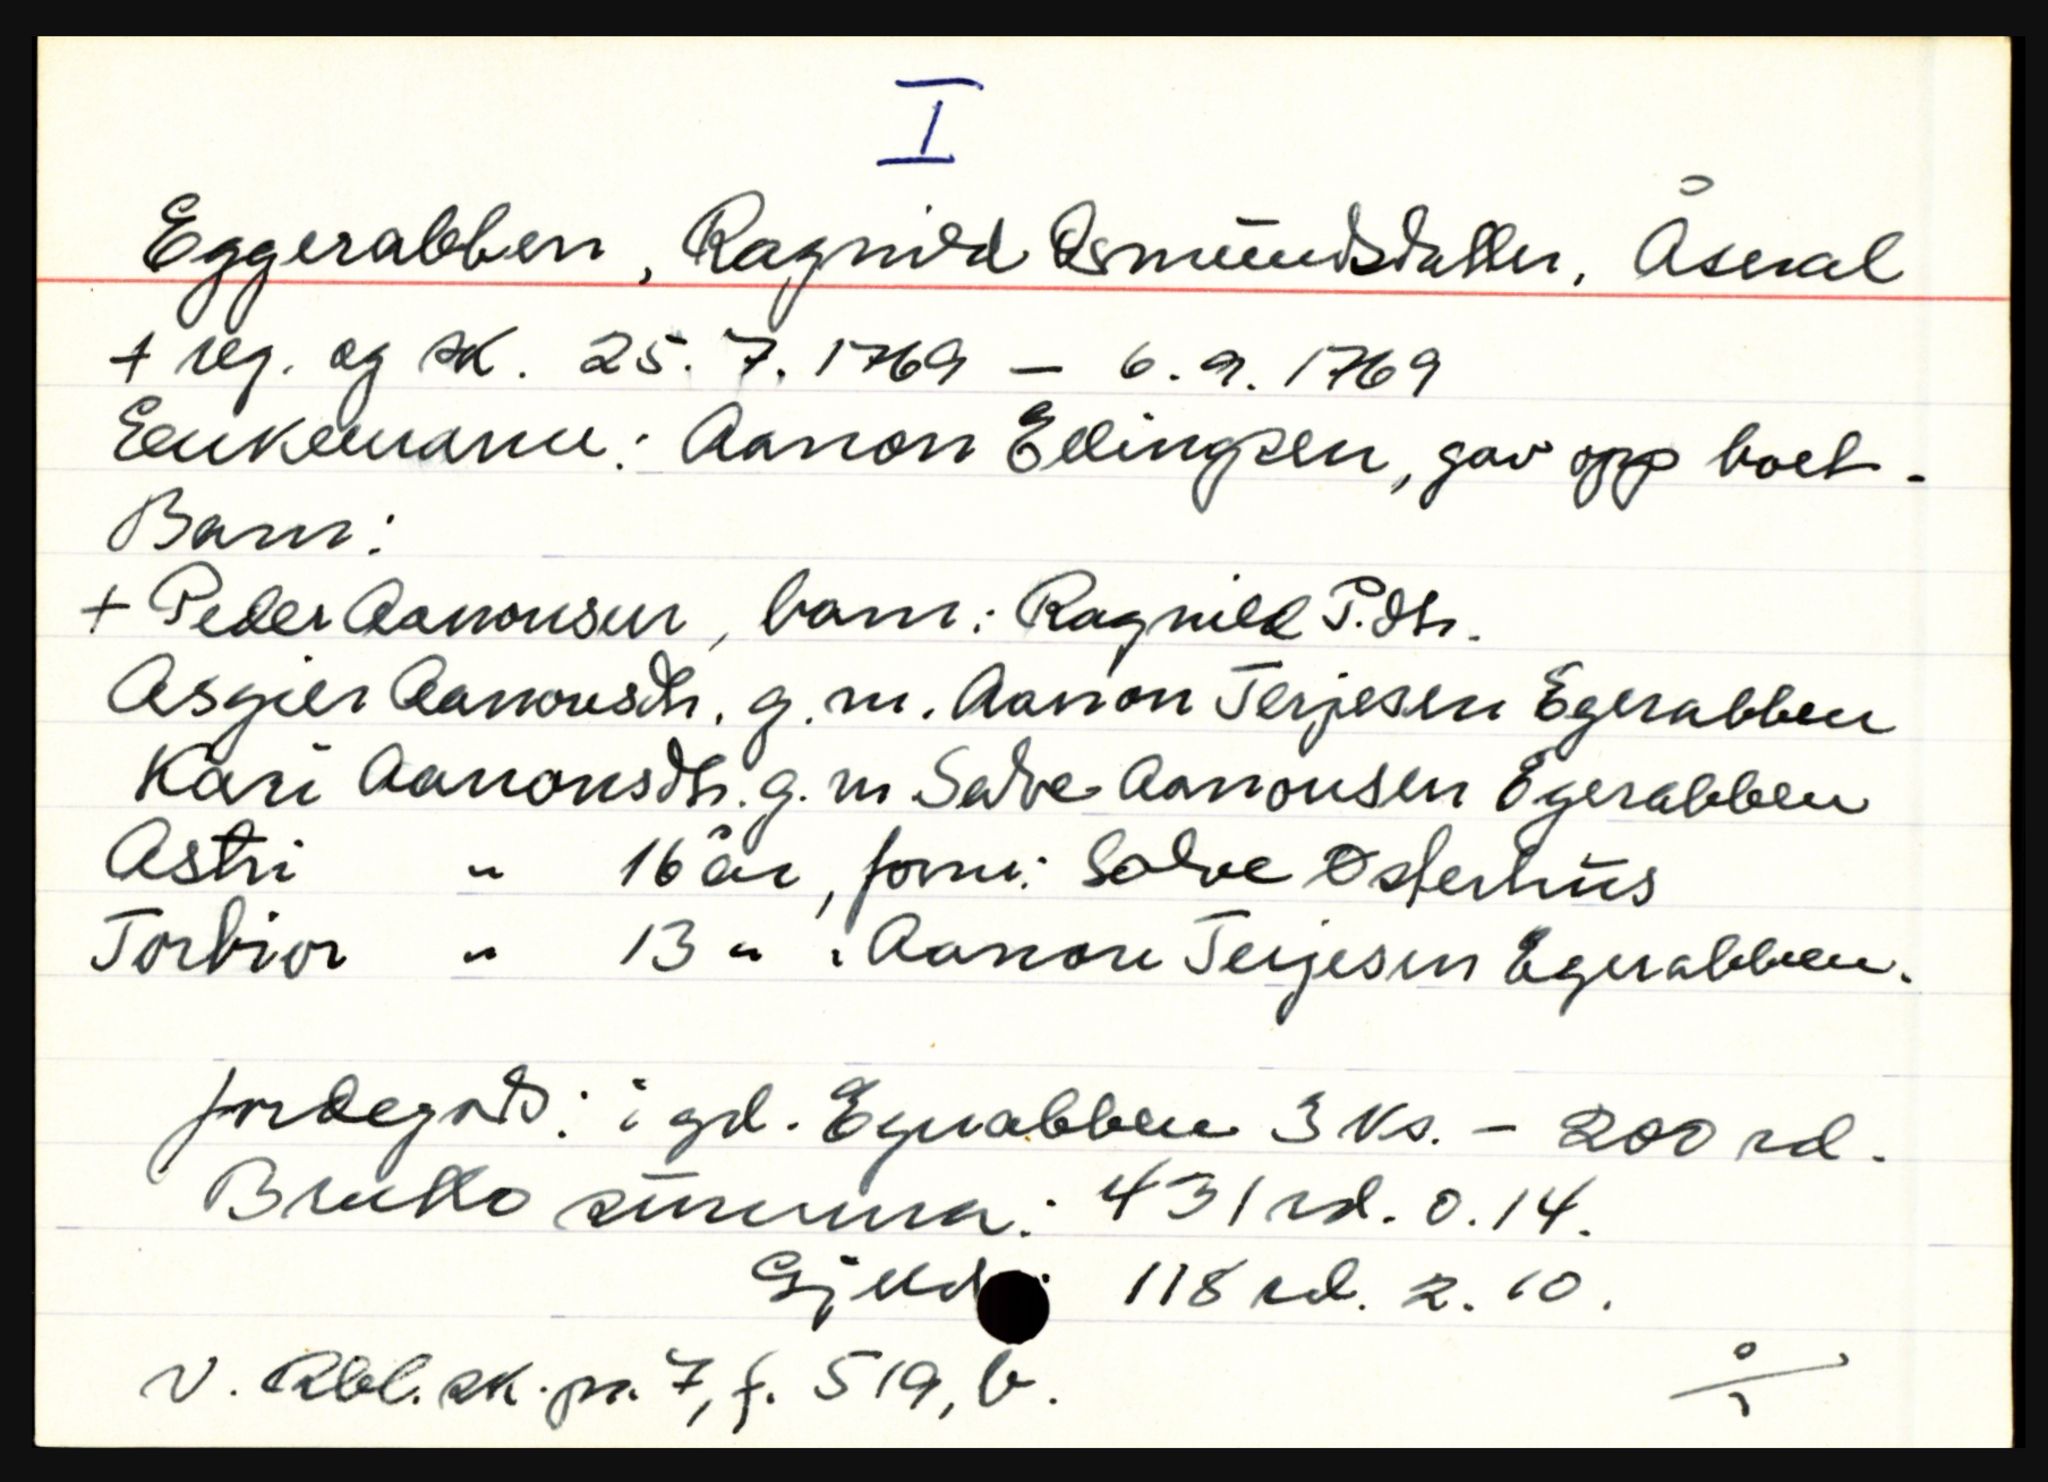 I
Eggerabben, Ragnild Osmundsdatter, Åseral
+ reg. og sk. 25.7.1769 – 6.9.1769
Enkemann: Aanon Ellingsen, gav opp boet.
Barn:
+ Peder Aanonsen, barn: Ragnild P.dtr.
Asgier Aanonsdtr. g.m. Aanon Terjesen Egerabben
Kari Aanonsdtr. g.m Salve Aanonsen Egerabben
Astri " 16 år, form: Salve Osferhus
Torbior " 13 " : Aanon Terjesen Egerabben.
Jordegods: i gd. Egerabben 3 ks. – 200 rd.
Brutto summa: 431 rd. 0.14.
Gjeld: 118 rd. 2.10.
V. Rbl. sk. pr. 7, f. 519, b.